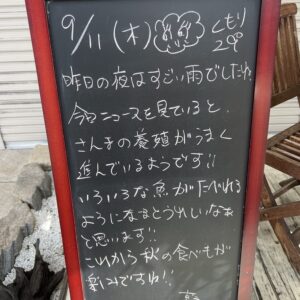 9/11(木) くもり
29°
昨日の夜はすごい雨でしたね
今日ニュースを見ていると、
さんまの養殖がうまく
進んでいるようです!!
いろいろな魚がたべれる
ようになるとうれしいなぁ
と思います!!
これから秋の食べものが
楽しみですね!!